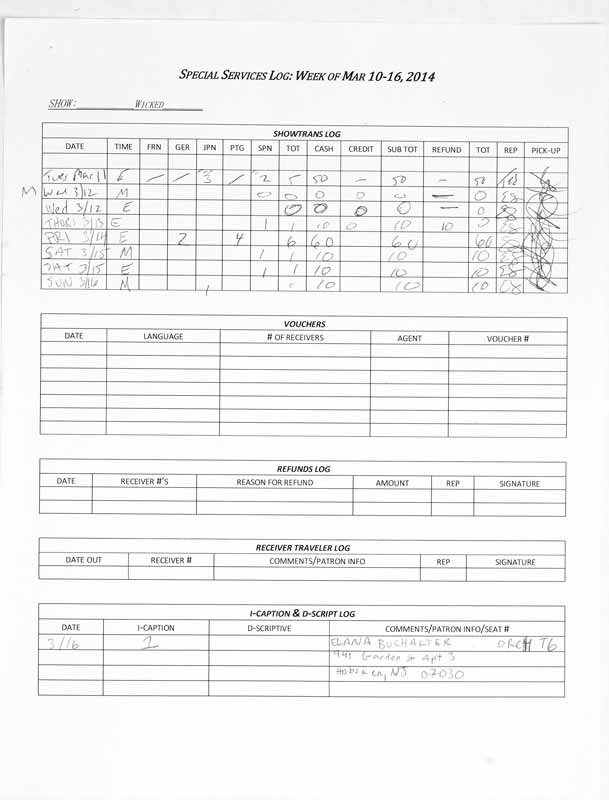 SPECIAL SERVICES LOG: WEEK OF MAR 10-16, 2014
SHOW: WICKED
SHOWTRANS LOG
DATE TIME FRN GER JPN PTG SPN TOT CASH CREDIT SUB TOT REFUND TOT REP PICK-UP
Tues Mar 11 E / / 3 / 2 5 50 — 50 — 50
M Wed 3/12 M 0 0 0 0 0 — 0 EB
Wed 3/12 E 0 0 0 0 — 0 EB
THURS 3/13 E 1 1 10 0 10 10 0 EB
FRI 3/14 E 2 4 6 60 60 60 EB
SAT 3/15 M 1 1 10 10 10 EB
SAT 3/15 E 1 1 10 10 10 EB
SUN 3/16 M 1 1 10 10 10 EB
VOUCHERS
DATE LANGUAGE # OF RECEIVERS AGENT VOUCHER #
REFUNDS LOG
DATE RECEIVER #'S REASON FOR REFUND AMOUNT REP SIGNATURE
RECEIVER TRAVELER LOG
DATE OUT RECEIVER # COMMENTS/PATRON INFO REP SIGNATURE
I-CAPTION & D-SCRIPT LOG
DATE I-CAPTION D-SCRIPTIVE COMMENTS/PATRON INFO/SEAT #
3/16 1 ELANA BUCHALTER ORCH T6
941 Garden St Apt 3
Hoboken, NJ 07030